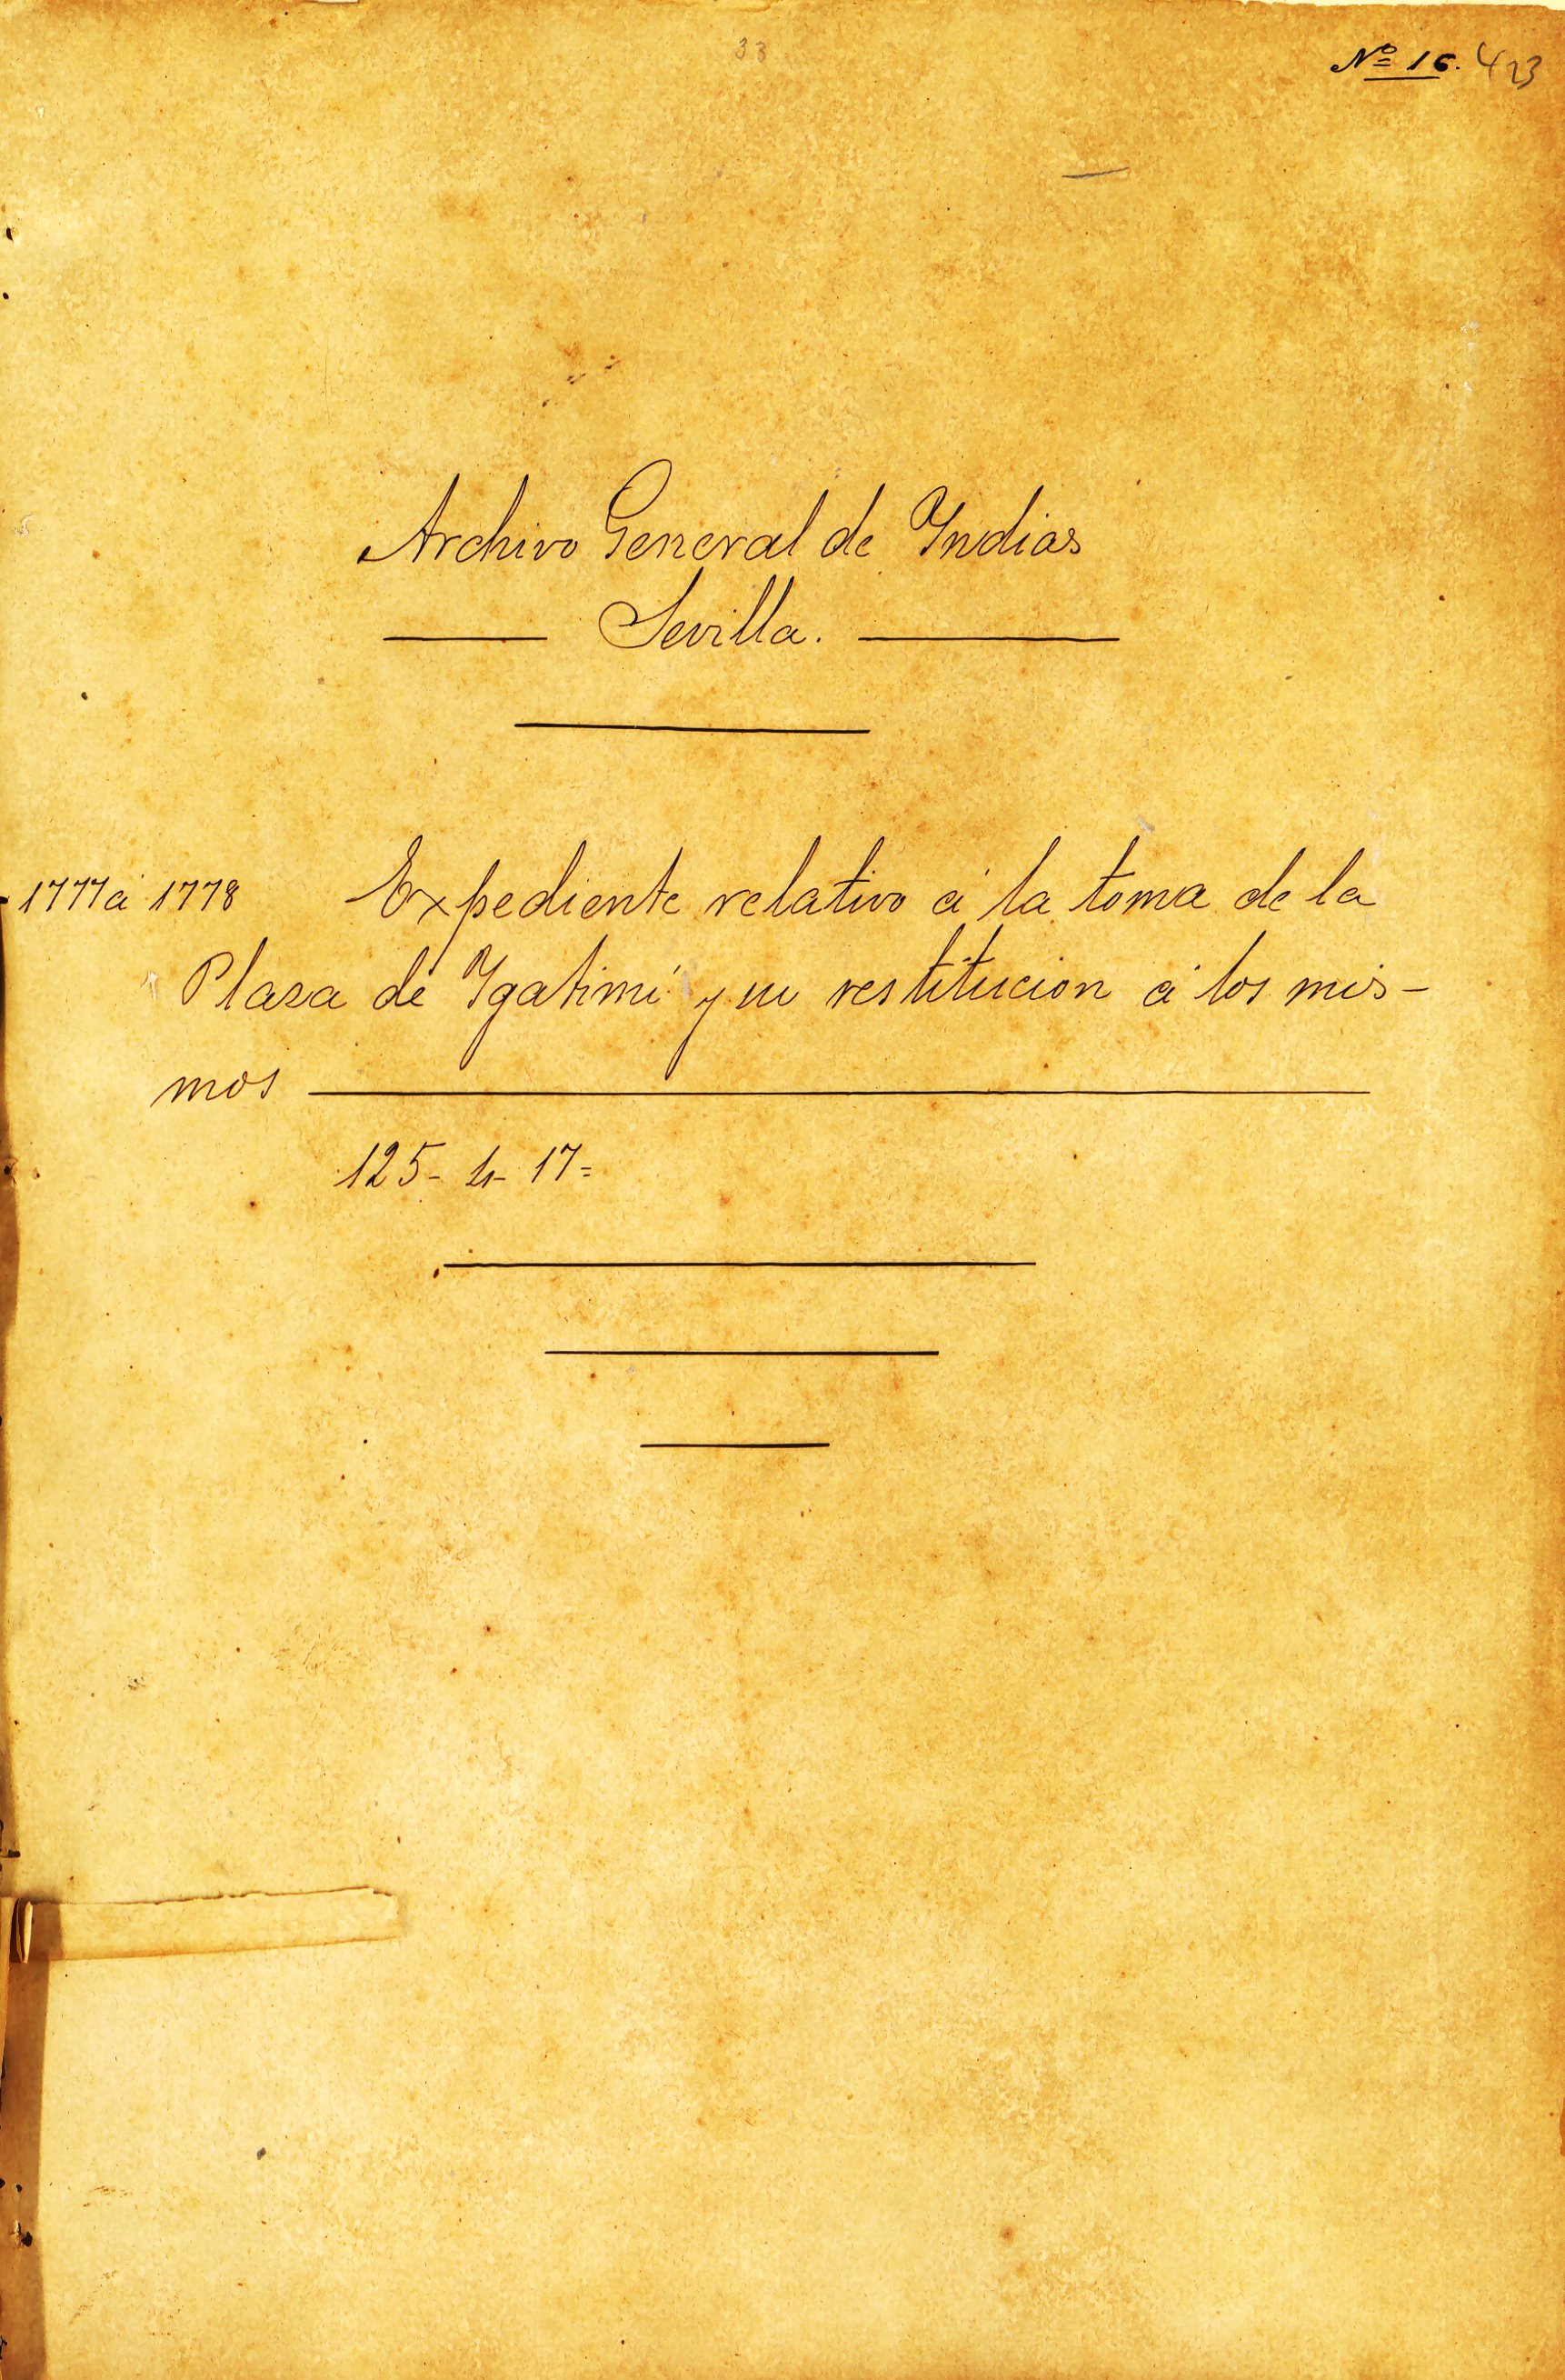 33
Nº 16. 423
Archivo General de Indias
Sevilla.
1777 á 1778 Expediente relativo á la toma de la
Plasa de Ygatimí y su restitucion á los mis-
mos
125- 4- 17=